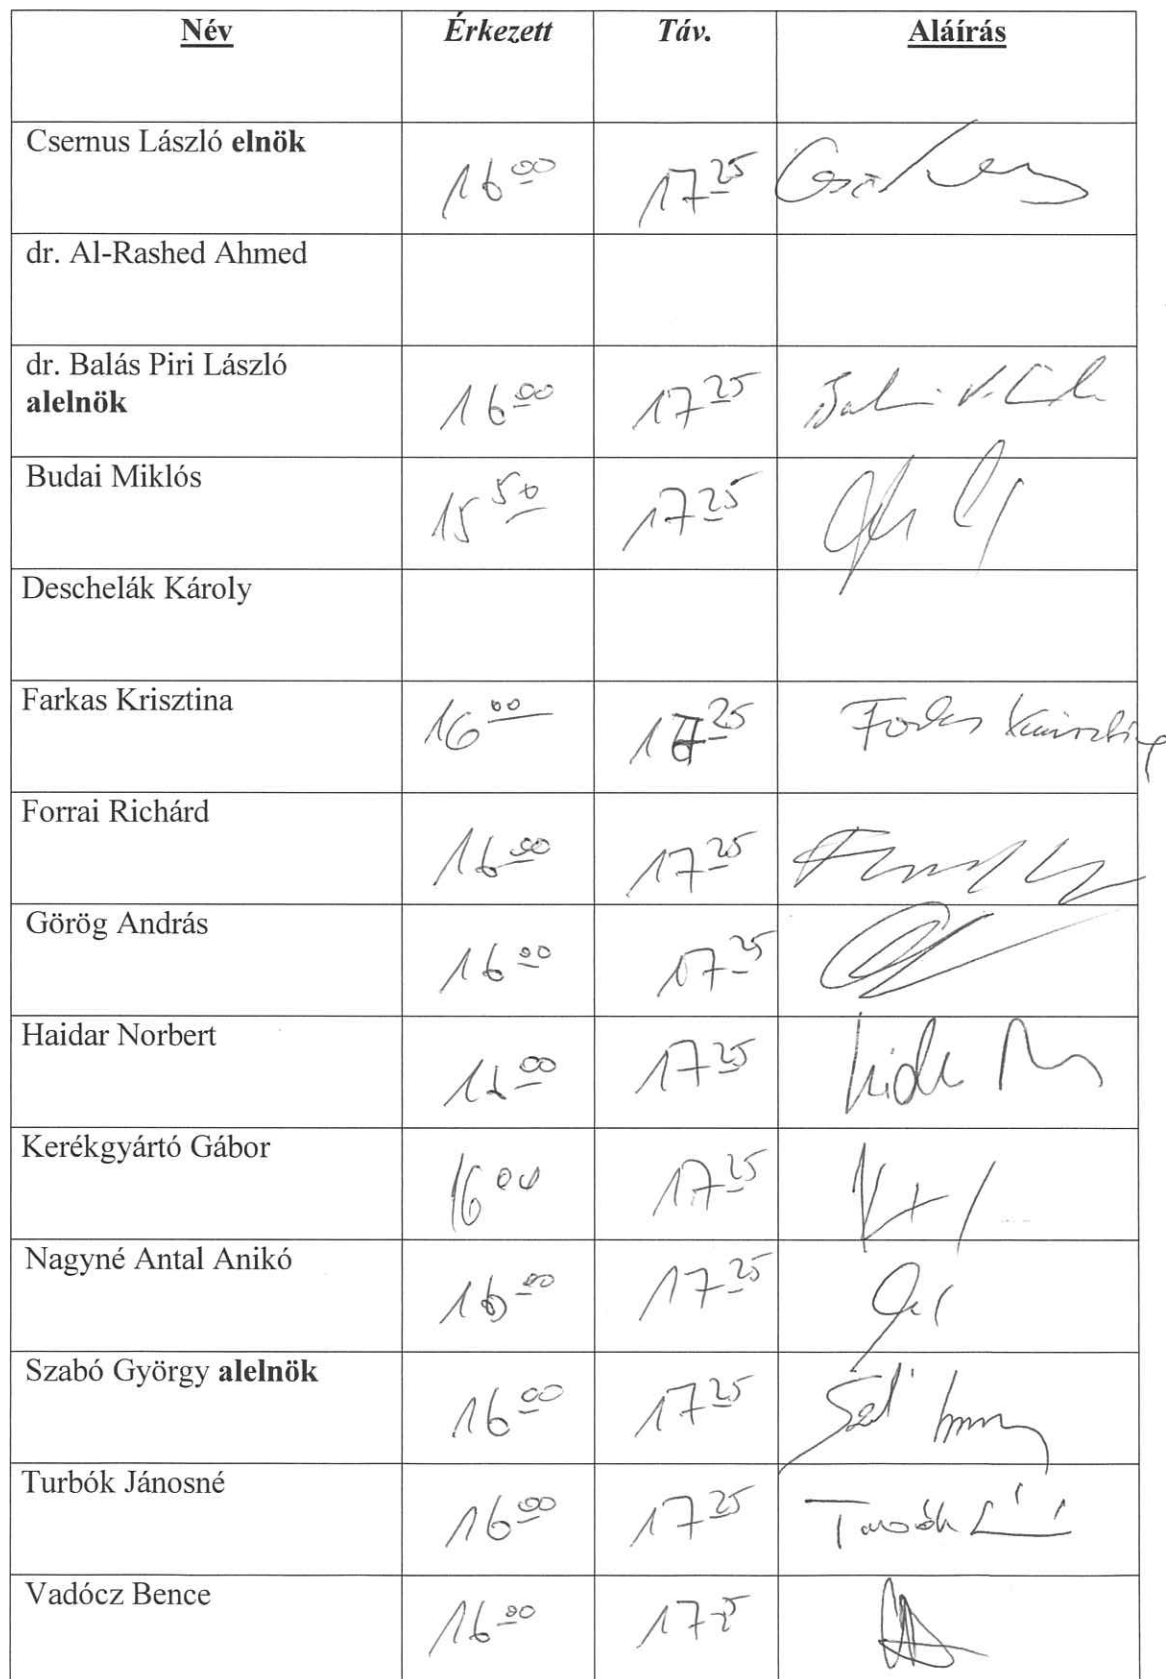 Név Érkezett Táv. Aláírás
Csernus László elnök
16 00 17 25
dr. Al-Rashed Ahmed
dr. Balás Piri László
alelnök
16 00 17 25
Budai Miklós
15 50 17 25
Deschelák Károly
Farkas Krisztina
16 00 17 25 Farkas Krisztina
Forrai Richárd
16 00 17 25
Görög András
16 00 17 25
Haidar Norbert
17 25
Kerékgyártó Gábor
16 00 17 25
Nagyné Antal Anikó
16 00 17 25
Szabó György alelnök
16 00 17 25
Turbók Jánosné
16 00 17 25
Vadócz Bence
16 00 17 25